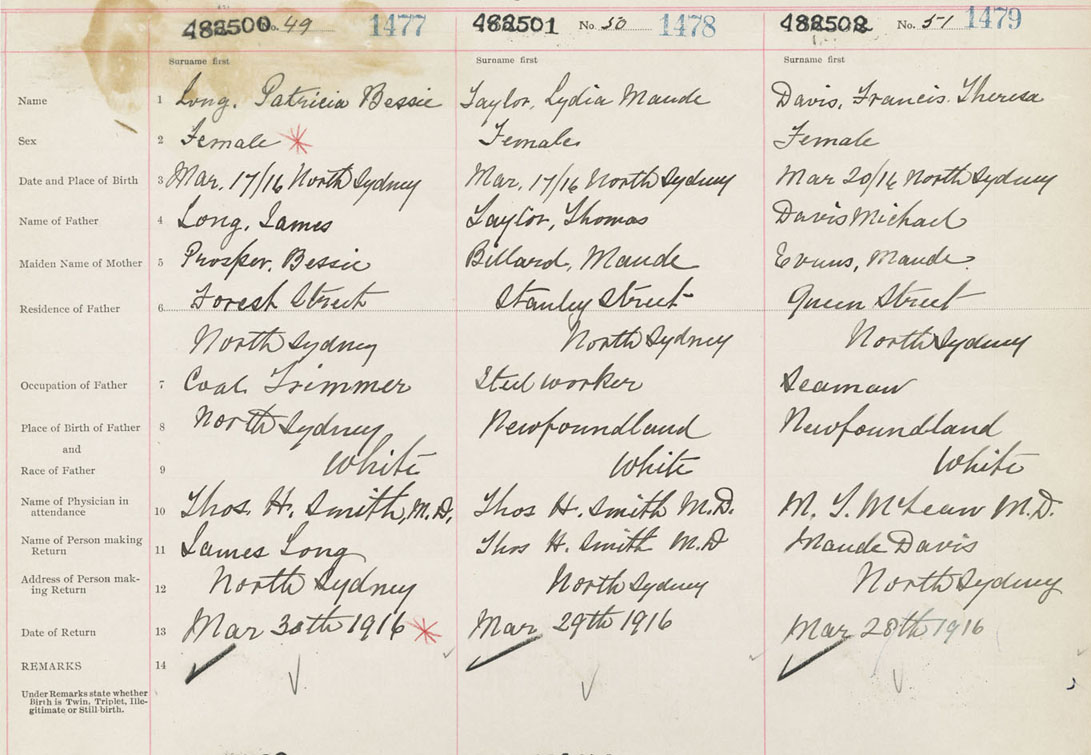 482500 No. 49 1477 482501 No. 50 1478 482502 No. 51 1479
Surname first Surname first Surname first
Name 1 Long, Patricia Bessie Taylor, Lydia Maude Davis, Francis Theresa
Sex 2 Female Female Female
Date and Place of Birth 3 Mar. 17/16 North Sydney Mar. 17/16 North Sydney Mar 20/16 North Sydney
Name of Father 4 Long, James Taylor, Thomas Davis Michael
Maiden Name of Mother 5 Prosper, Bessie Billard, Maude Evans, Maude
Residence of Father 6 Forest Street Stanley Street Queen Street
North Sydney North Sydney North Sydney
Occupation of Father 7 Coal Trimmer Steel worker Seaman
Place of Birth of Father 8 North Sydney Newfoundland Newfoundland
and
Race of Father 9 White White White
Name of Physician in attendance 10 Thos. H. Smith, M.D. Thos H. Smith M.D. M. T. McLean M.D.
Name of Person making Return 11 James Long Thos H. Smith M.D Maude Davis
Address of Person mak-ing Return 12 North Sydney North Sydney North Sydney
Date of Return 13 Mar 30th 1916 Mar 29th 1916 Mar 28th 1916
REMARKS 14
Under Remarks state whether
Birth is Twin, Triplet, Ille-
gitimate or Still-birth.